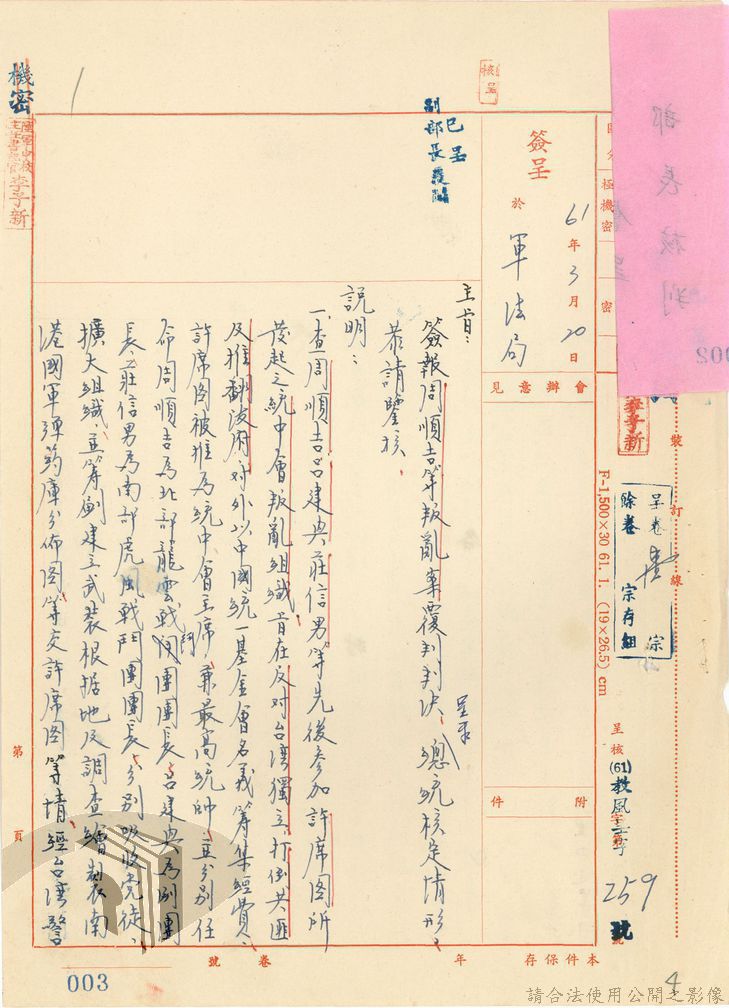 部長核判
002
機密
李子新
核呈
已呈
副部長
簽呈
61年3月20日
於 軍法局
極機密
密
會辦意見
附件
李子新
裝訂線
呈卷 壹 宗
餘卷 宗存組
F-1,500×30 61. 1. (19×26.5) cm
呈核
(61)教風字第
259
號
主旨：
簽報周順吉等叛亂案覆判判決，呈奉總統核定情形，
恭請鑒核。
說明：
一、查周順吉、呂建興、莊信男等先後參加許席圖所
發起之統中會叛亂組織，旨在反对台灣獨立、打倒共匪
及推翻政府，对外以中國統一基金會名義籌集經費，
許席圖被推為統中會主席，兼最高統帥，並分別任
命周順吉為北部龍雲戰鬥團團長，呂建興為副團
長，莊信男為南部虎風戰鬥團團長，分別吸收党徒，
擴大組織，並籌劃建立武裝根据地及調查繪製南
港國軍彈葯庫分佈图等交許席图等情，經台灣警
第 頁
003
本件保存 年
卷 號
4
請合法使用公開之影像